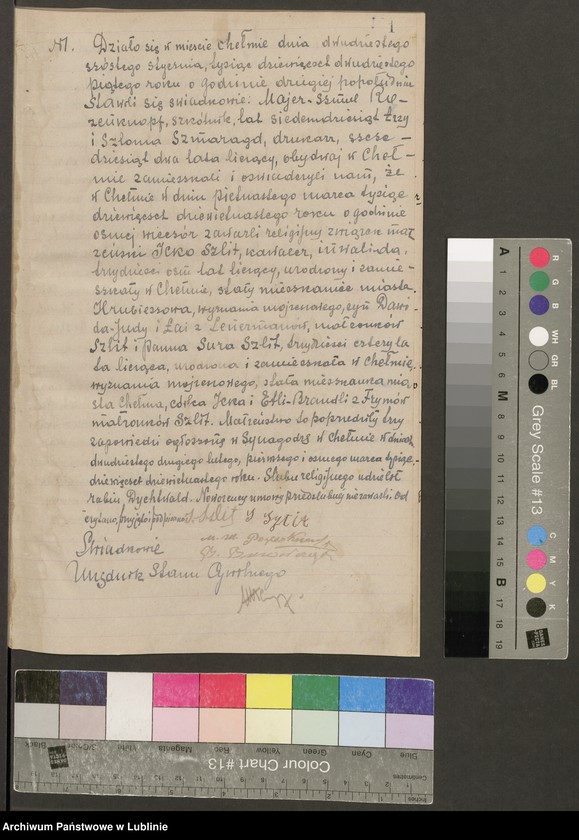 1
№1. Działo się w mieście Chełmie dnia dwudziestego
szóstego stycznia, tysiąc dziewięćset dwudziestego
piątego roku o godzinie drugiej popołudniu
Stawili się świadkowie: Majer-Szmul
szkolnik, lat siedemdziesiąt trzy
i Szloma Szmaragd, drukarz, sześć-
dziesiąt dwa lata liczący, obydwaj w Cheł-
mie zamieszkali i oświadczyli nam, że
w Chełmie w dniu piętnastego marca tysiąc
dziewięćset dziewiętnastego roku o godzinie
ósmej wieczór zawarli religijny związek mał-
żeński Icko Szlit, kawaler, inwalida,
trzydzieści osiem lat liczący, urodzony i zamie-
szkały w Chełmie, stały mieszkaniec miasta
Hrubieszowa, wyznania mojżeszowego, syn Dawi-
da-Judy i Łai z Lenermanów, małżonków
Szlit i panna Sura Szlit, trzydzieści cztery la-
ta licząca, urodzona i zamieszkała w Chełmie,
wyznania mojżeszowego, stała mieszkanka mia-
sta Chełma, córka Icka i Etli-Brandli z Frymów
małżonków Szlit. Małżeństwo to poprzedziły trzy
zapowiedzi ogłoszone w Synagodze w Chełmie w dniach
dwudziestego drugiego lutego, pierwszego i ósmego marca tysiąc
dziewięćset dziewiętnastego roku. Ślubu religijnego udzielił
rabin Rychtwald. Nowożeńcy umowy przedślubnej nie zawarli. Od
czytano, przyjęto i podpisano
Świadkowie
Urzędnik Stanu Cywilnego
A 1 2 3 4 5 6 M 8 9 10 11 12 13 14 15 B 17 18 19
R G B WH GR BL
Grey Scale #13
C M Y K
Black 3/Color White Magenta Red Yellow Green Cyan Blue
Colour Chart #13
Centimetres
Inches
Archiwum Państwowe w Lublinie